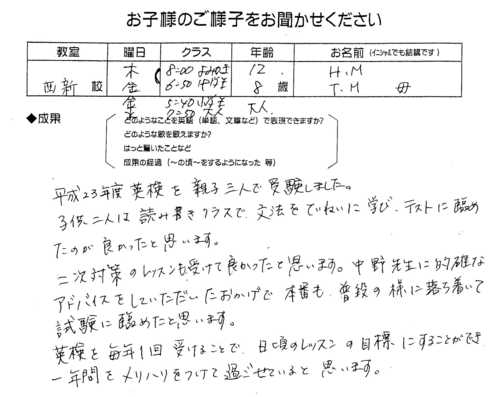 お子様のご様子をお聞かせください
教室 曜日 クラス 年齢 お名前(イニシャルでも結構です)
西新 校 木 8:00 よみかき 12. H.M
金 6:50 中級 8 歳 T.M 母
金 5:40 大人
7:50 大人
◆成果
どのようなことを英語(単語、文章など)で表現できますか?
どのような歌を歌えますか?
はっと驚いたことなど
成果の経過(～の頃～をするようになった 等)
平成23年度 英検を親子三人で受験しました。
子供二人は読み書きクラスで、文法をていねいに学び、テストに臨め
たのが良かったと思います。
二次対策のレッスンも受けて良かったと思います。中野先生に的確な
アドバイスをしていただいたおかげで本番も、普段の様に落ち着いて
試験に臨めたと思います。
英検を毎年1回受けることで、日頃のレッスンの目標にすることができ
一年間をメリハリをつけて過ごせていると思います。